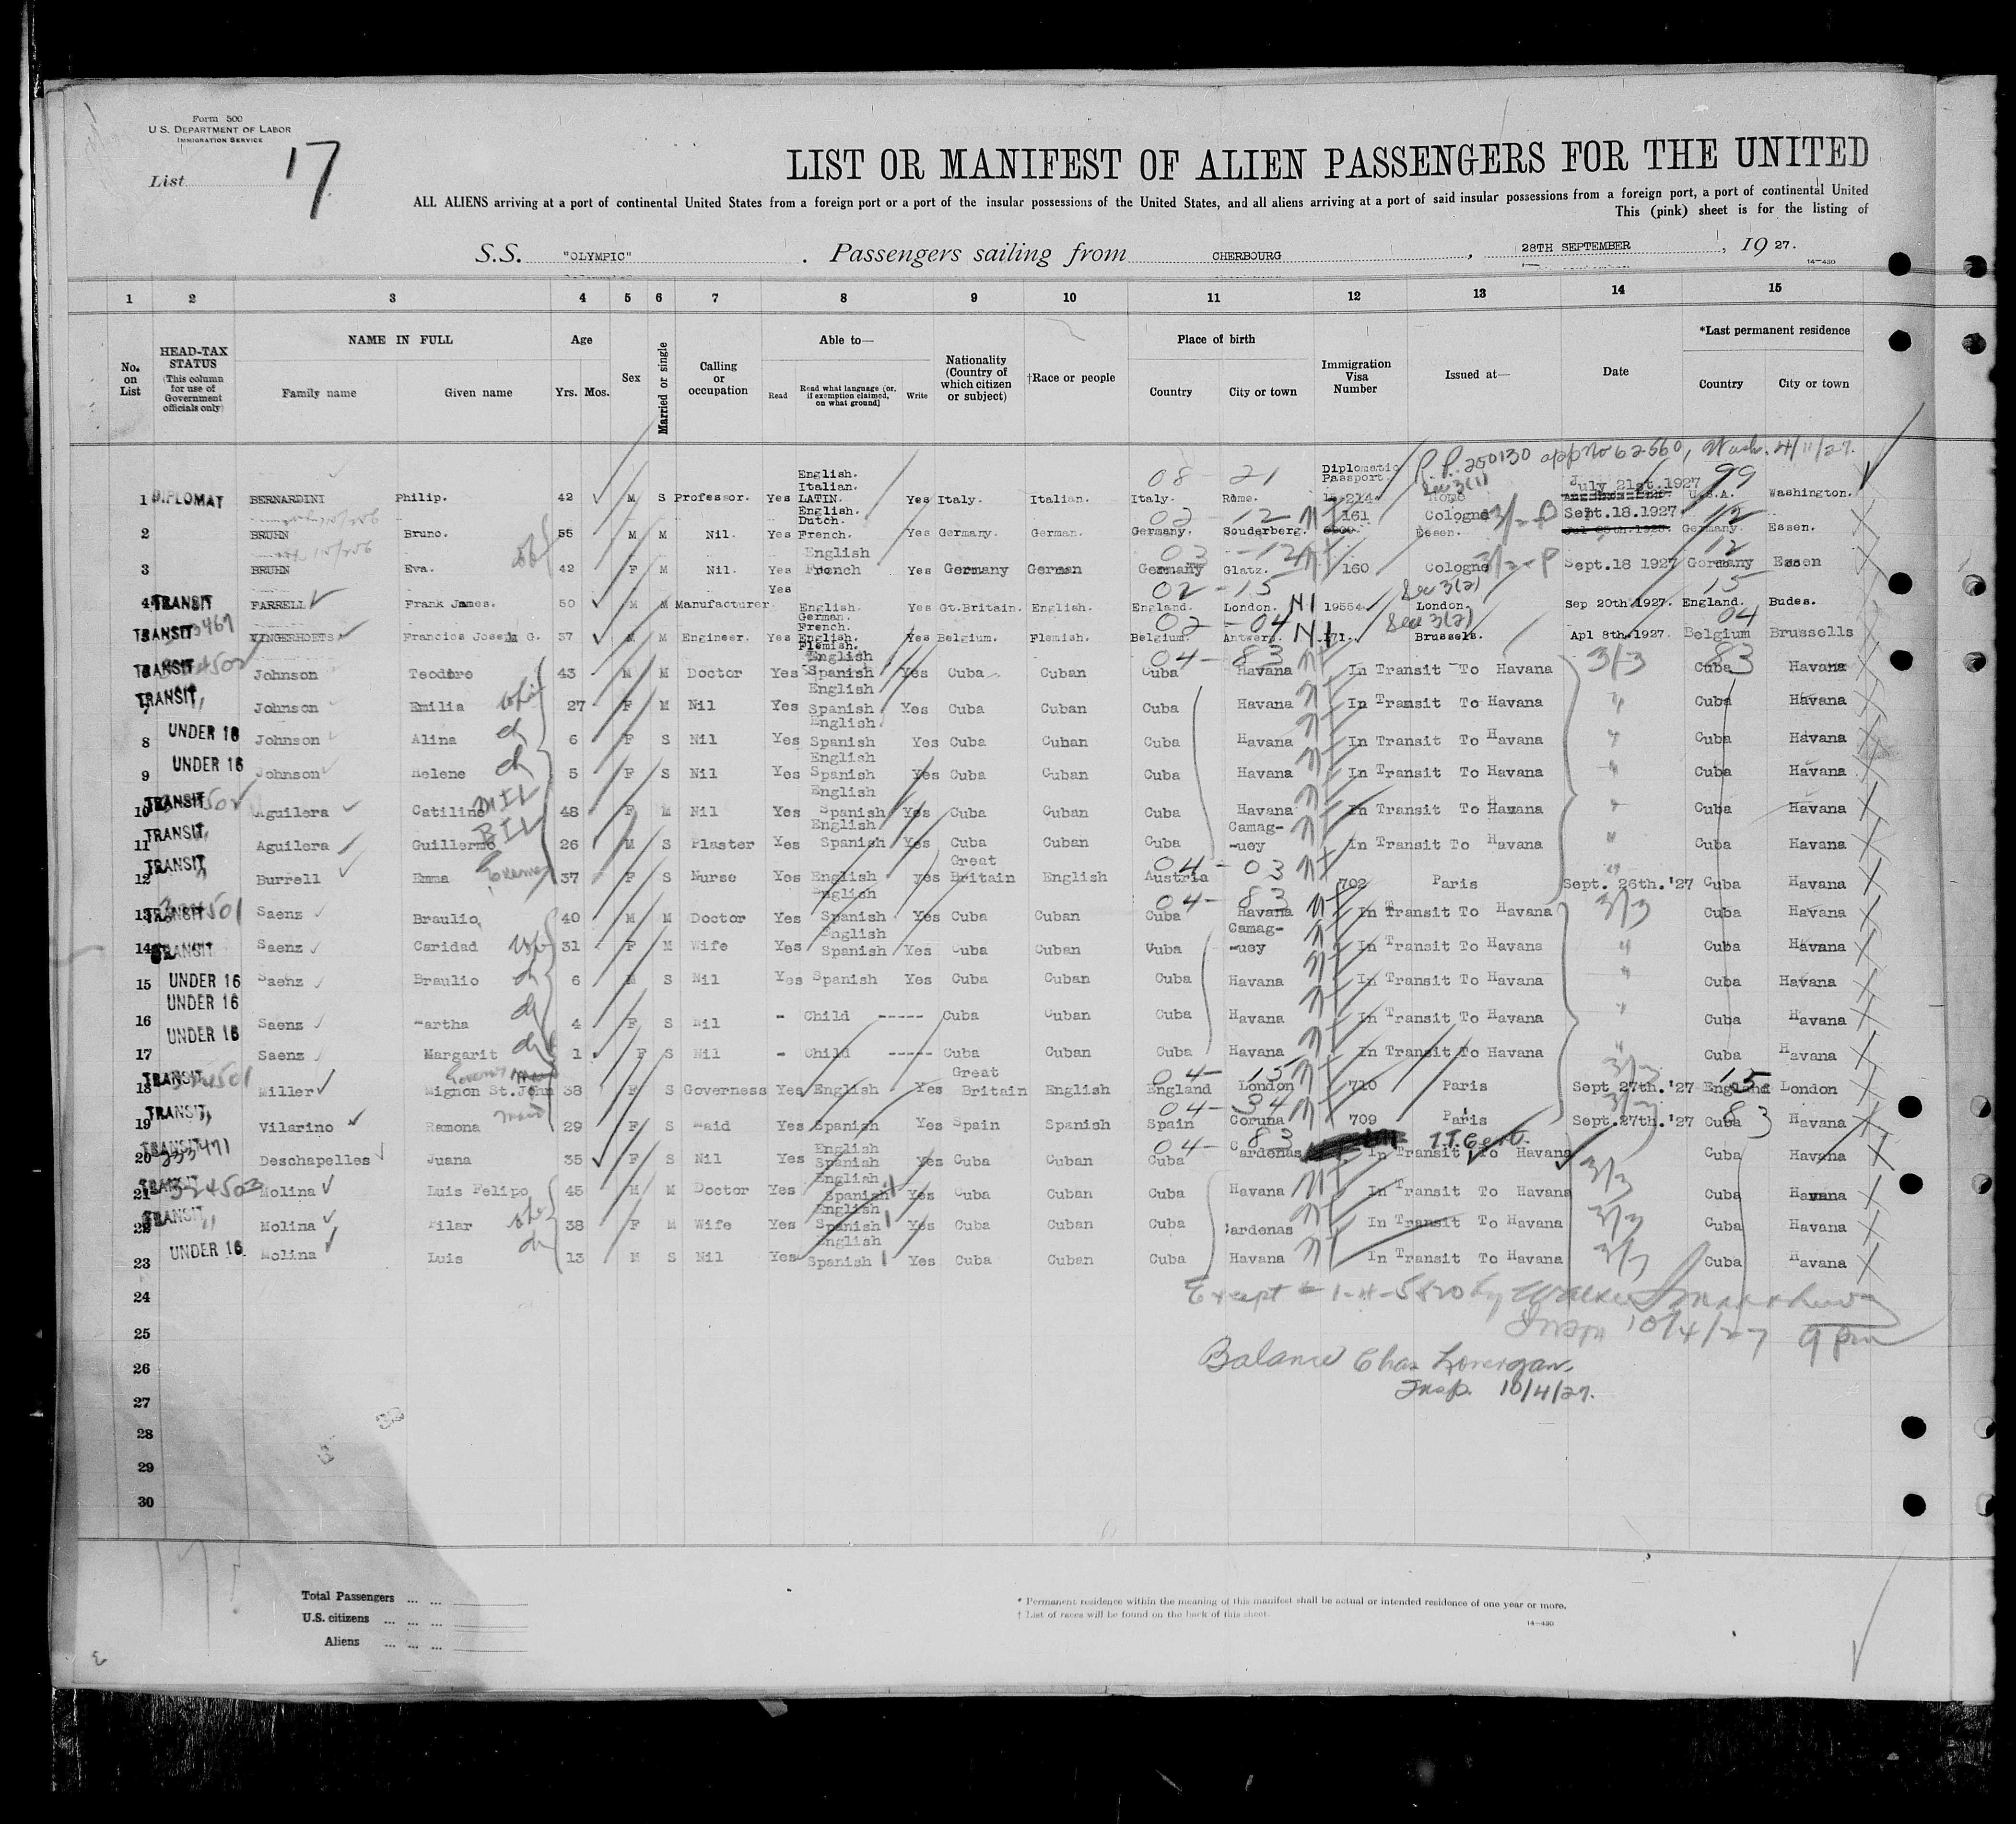 Form 500
U.S. DEPARTMENT OF LABOR
IMMIGRATION SERVICE
List 17
LIST OR MANIFEST OF ALIEN PASSENGERS FOR THE UNITED
ALL ALIENS arriving at a port of continental United States from a foreign port or a port of the insular possessions of the United States, and all aliens arriving at a port of said insular possessions from a foreign port, a port of continental United
This (pink) sheet is for the listing of
S.S. "OLYMPIC". Passengers sailing from CHERBOURG, 28TH SEPTEMBER, 1927.
14-430
1 2 3 4 5 6 7 8 9 10 11 12 13 14 15
No. on List
HEAD-TAX STATUS (This column for use of Government officials only)
NAME IN FULL
Family name Given name
Age
Yrs. Mos.
Sex
Married or single
Calling or occupation
Able to—
Read
Read what language (or, if exemption claimed, on what ground)
Write
Nationality (Country of which citizen or subject)
†Race or people
Place of birth
Country City or town
Immigration Visa Number
Issued at—
Date
*Last permanent residence
Country City or town
P.P. 250130 62560, Wash. 4/11/27.
08 - 21 Sec 3(1) 99
1 DIPLOMAT BERNARDINI Philip. 42 M S Professor. Yes English. Italian. LATIN. Yes Italy. Italian. Italy. Rome. Diplomatic Passport. 214 July 21st.1927 U.S.A. Washington.
02 - 12 12
2 BRUHN Bruno. 55 M M Nil. Yes English. Dutch. French. Yes Germany. German. Germany. Souderberg. 161 Cologne Essen. Sept.18.1927 Germany. Essen.
03 - 12 12
3 BRUHN Eva. 42 F M Nil. Yes English French Yes Germany German Germany Glatz. 160 Cologne Sept.18 1927 Germany Essen
02 - 15 Sec 3(2) 15
4 TRANSIT FARRELL Frank James. 50 M M Manufacturer. Yes English. Yes Gt.Britain. English. England. London. 19554 London. Sep 20th.1927. England. Budes.
02 - 04 Sec 3(2) 04
TRANSIT VINGERHOETS Francios Joseph G. 37 M M Engineer. Yes German. French. English. Flemish. Yes Belgium. Flemish. Belgium. Antwerp. 171. Brussels. Apl 8th.1927. Belgium Brussells
04 - 83 3/3 83
TRANSIT Johnson Teodoro 43 M M Doctor Yes English Spanish Yes Cuba Cuban Cuba Havana In Transit To Havana Cuba Havana
7 TRANSIT, Johnson Emilia wife 27 F M Nil Yes English Spanish Yes Cuba Cuban Cuba Havana In Transit To Havana " Cuba Havana
8 UNDER 16 Johnson Alina ch 6 F S Nil Yes English Spanish Yes Cuba Cuban Cuba Havana In Transit To Havana " Cuba Havana
9 UNDER 16 Johnson Helene ch 5 F S Nil Yes English Spanish Yes Cuba Cuban Cuba Havana In Transit To Havana " Cuba Havana
10 TRANSIT Aguilera Catilina MIL 48 F M Nil Yes English Spanish Yes Cuba Cuban Cuba Havana In Transit To Havana " Cuba Havana
11 TRANSIT, Aguilera Guillermo BIL 26 M S Planter Yes English Spanish Yes Cuba Cuban Cuba Camag-uey In Transit To Havana " Cuba Havana
04 - 03
12 TRANSIT, Burrell Emma 37 F S Nurse Yes English yes Great Britain English Austria 702 Paris Sept. 26th.'27 Cuba Havana
04 - 83 3/3
13 TRANSIT 324501 Saenz Braulio, 40 M M Doctor Yes English Spanish Yes Cuba Cuban Cuba Havana In Transit To Havana Cuba Havana
14 TRANSIT Saenz Caridad wife 31 F M Wife Yes English Spanish Yes Cuba Cuban Cuba Camag-uey In Transit To Havana " Cuba Havana
15 UNDER 16 Saenz Braulio ch 6 M S Nil Yes Spanish Yes Cuba Cuban Cuba Havana In Transit To Havana " Cuba Havana
16 UNDER 16 Saenz Martha ch 4 F S Nil - Child ----- Cuba Cuban Cuba Havana In Transit To Havana " Cuba Havana
17 UNDER 16 Saenz Margarit ch 1 F S Nil - Child ----- Cuba Cuban Cuba Havana In Transit To Havana " Cuba Havana
04 - 15 3/3 15
18 TRANSIT 324501 Miller Mignon St.John 38 F S Governess Yes English Yes Great Britain English England London 710 Paris Sept 27th.'27 England London
04 - 34 83
19 TRANSIT, Vilarino Ramona maid 29 F S Maid Yes Spanish Yes Spain Spanish Spain Coruna 709 Paris Sept.27th.'27 Cuba Havana
04 - 83 T.T. Cert.
20 TRANSIT Deschapelles Juana 35 F S Nil Yes English Spanish Yes Cuba Cuban Cuba Cardenas In Transit To Havana Cuba Havana
21 TRANSIT 324503 Molina Luis Felipo 45 M M Doctor Yes English Spanish Yes Cuba Cuban Cuba Havana In Transit To Havana 3/3 Cuba Havana
22 TRANSIT, Molina Pilar wife 38 F M Wife Yes English Spanish Yes Cuba Cuban Cuba Cardenas In Transit To Havana 3/3 Cuba Havana
23 UNDER 16 Molina Luis ch 13 M S Nil Yes English Spanish Yes Cuba Cuban Cuba Havana In Transit To Havana 3/3 Cuba Havana
24 Except # 1-4-5 & 20 by
25 Insp 10/4/27 9 pm
26 Balance Chas Lonergan.
27 Insp. 10/4/27.
28
29
30
Total Passengers ... ...
U.S. citizens ... ... ...
Aliens ... ... ...
* Permanent residence within the meaning of this manifest shall be actual or intended residence of one year or more.
† List of races will be found on the back of this sheet.
14-430